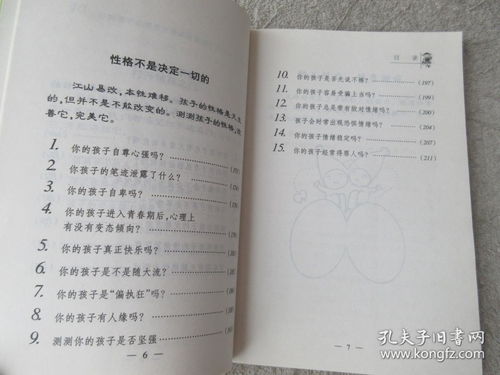 性格不是决定一切的
江山易改,本性难移。孩子的性格是天生
的,但并不是不能改变的。测测孩子的性格,改
善它,完美它。
1. 你的孩子自尊心强吗?
2. 你的孩子的笔迹泄露了什么?
3. 你的孩子自卑吗?
4. 你的孩子进入青春期后,心理上
有没有变态倾向?
5. 你的孩子真正快乐吗?
6. 你的孩子是不是随大流?
7. 你的孩子是“偏执狂”吗?
8. 你的孩子有人缘吗?
9. 测测你的孩子是否坚强
— 6 —
目 录
10. 你的孩子是否先说不棒? (197)
11. 你的孩子容易受骗上当吗? (199)
12. 你的孩子总是带有敌对情绪吗? (200)
13. 孩子会时常出现恐惧情绪吗? (204)
14. 你的孩子情绪稳定吗? (207)
15. 你的孩子经常得罪人吗? (211)
— 7 —
孔夫子旧书网
www.kongfz.com